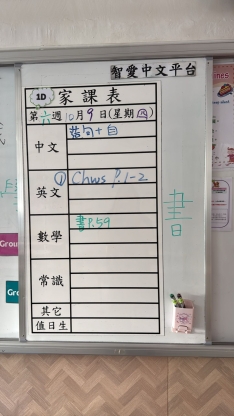 智愛中文平台
1D 家課表
第六週10月9日(星期四)
中文 詞句+自
英文 ① Chws P.1-2
數學 書P.59
常識
其它
值日生
日
Grou
Gr